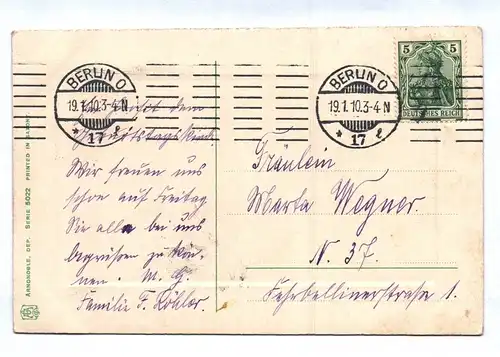 BERLIN O
19.1.10.3-4 N
* 17 l
BERLIN O
19.1.10.3-4 N
* 17 l
5 5
DEUTSCHES REICH
dem
Geburtstagskind.
Wir freuen uns
schon auf Freitag
Sie alle bei uns
begrüßen zu kön-
nen. M. G.
Familie F. Köhler.
Fräulein
Marta Wegner.
N. 37.
Fehrbellinerstraße 1.
ARNONOBLE, DEP. SERIE 5022 PRINTED IN